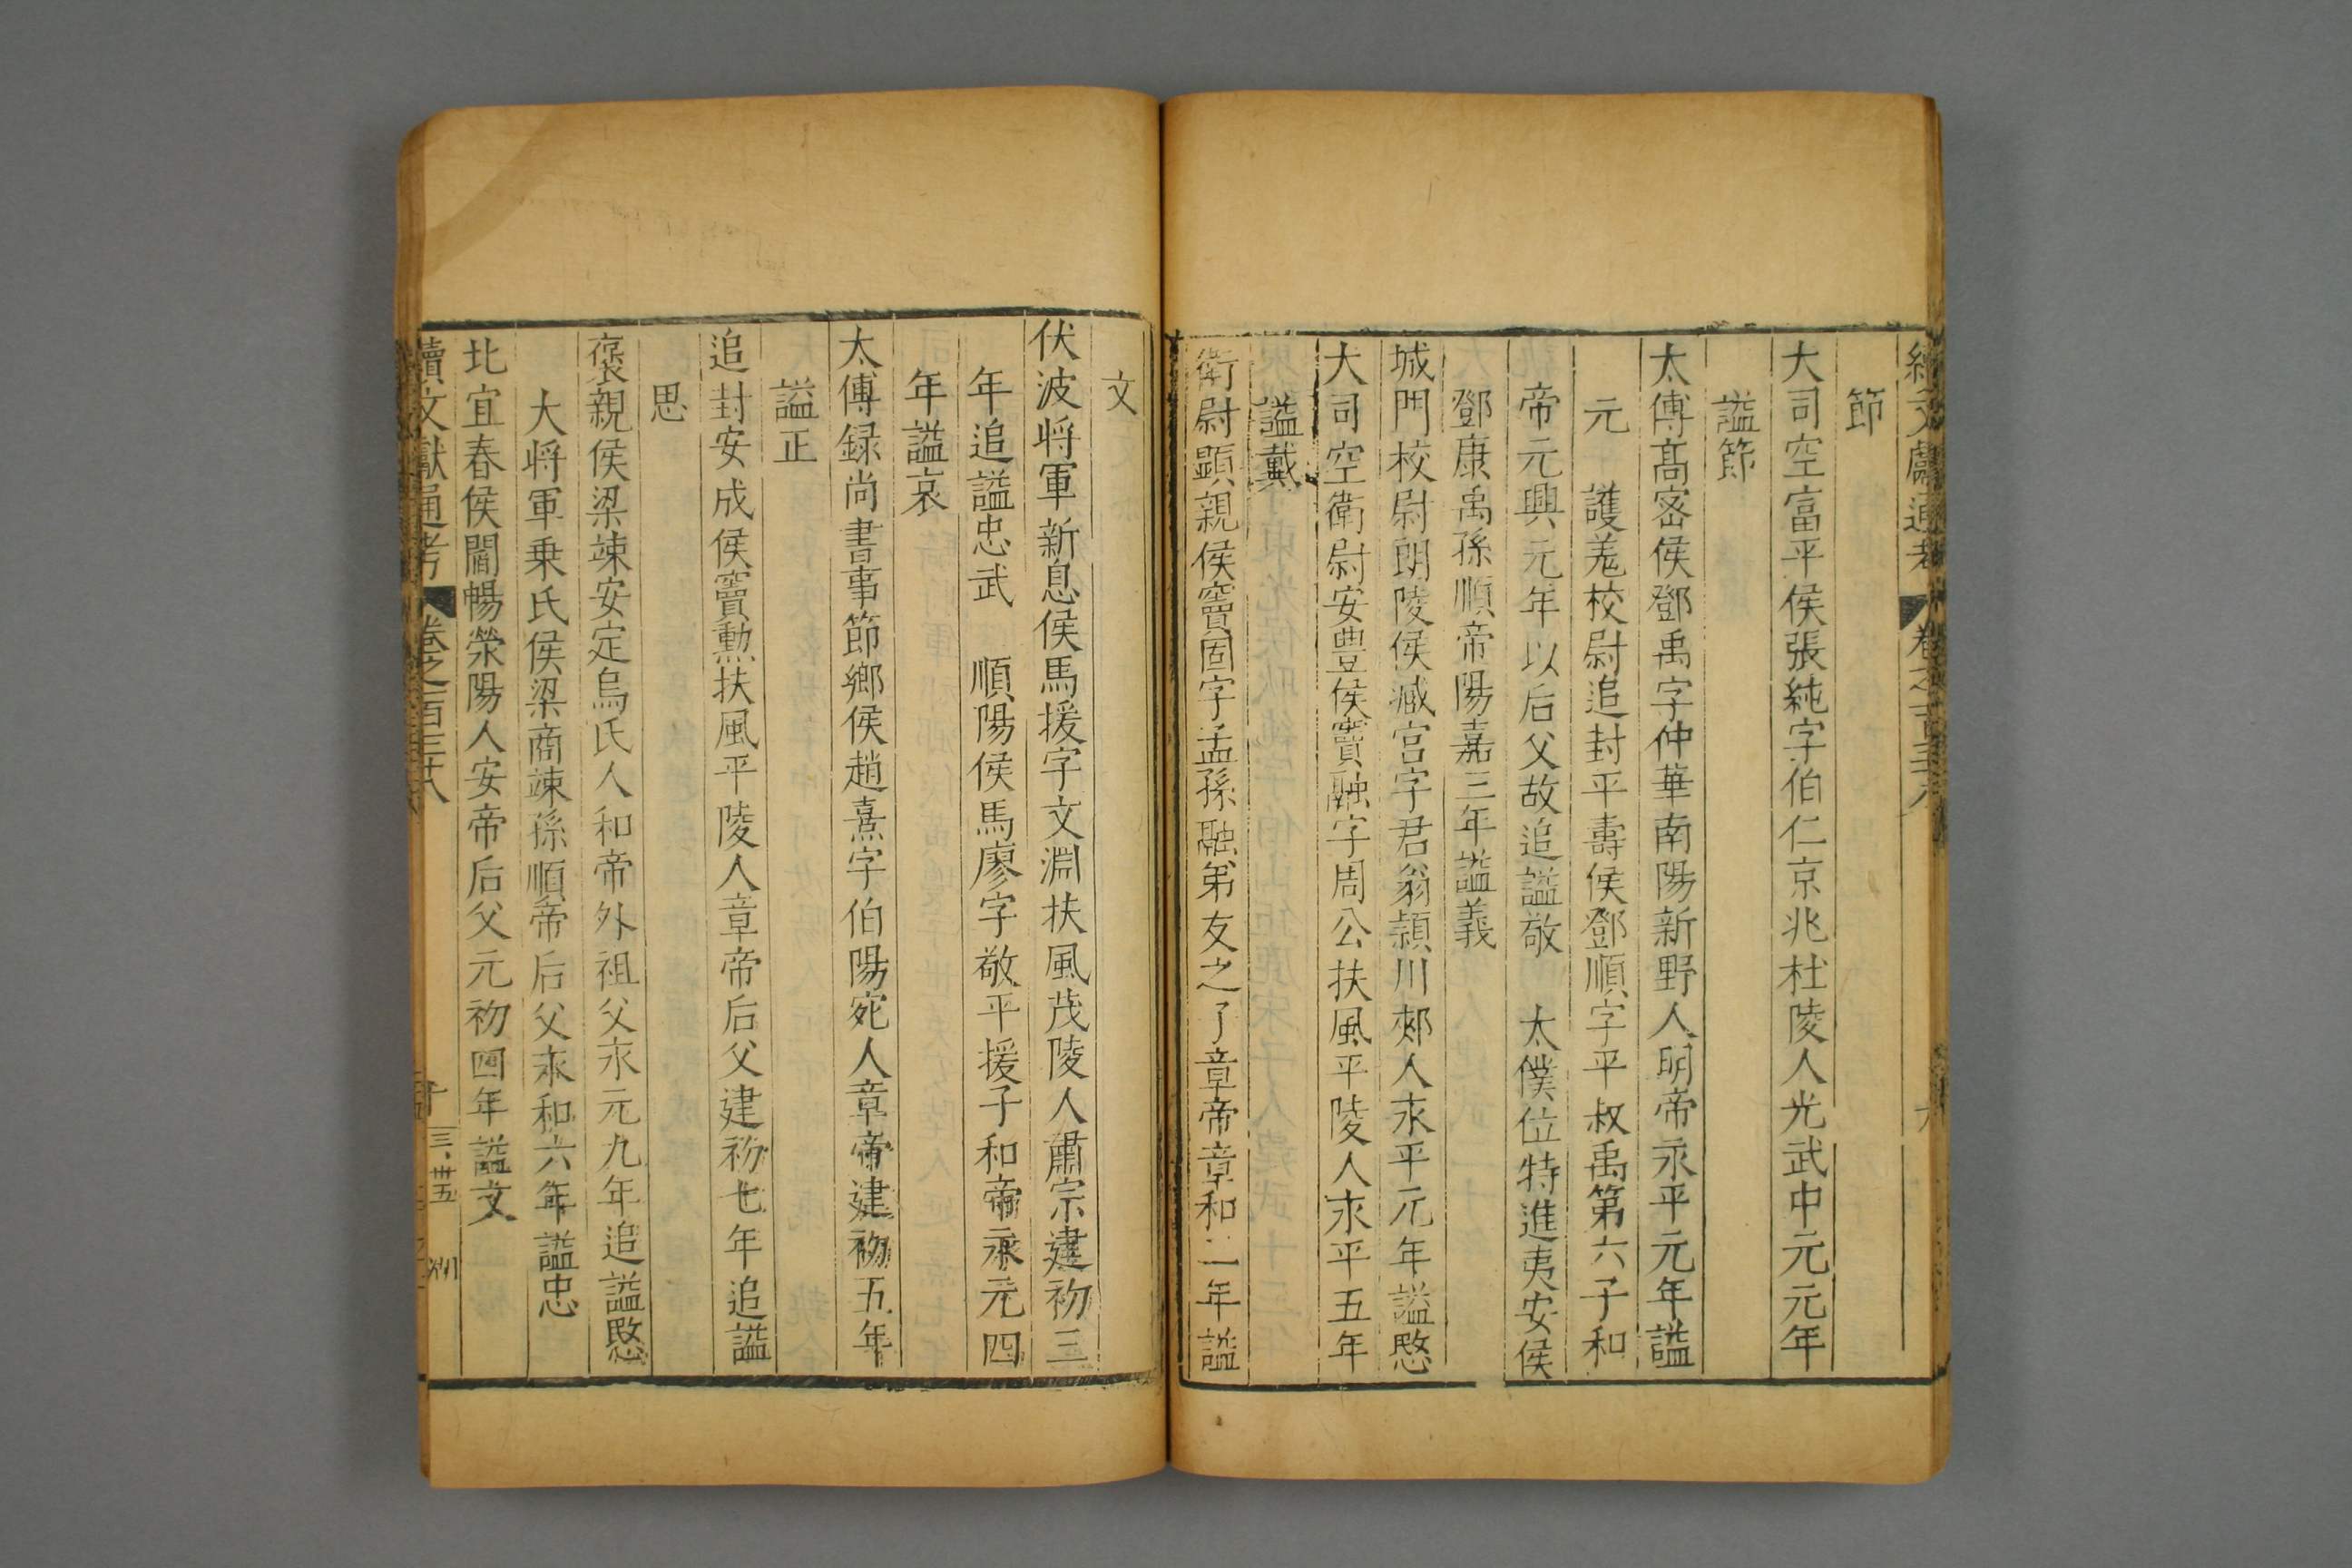 續文獻通考 卷之一百三十八
節
大司空富平侯張純字伯仁京兆杜陵人光武中元元年
謚節
太傅髙宻侯鄧禹字仲華南陽新野人明帝永平元年謚
元 護羗校尉追封平壽侯鄧順字平叔禹第六子和
帝元興元年以后父故追謚敬 太僕位特進夷安侯
鄧康禹孫順帝陽嘉三年謚義
城門校尉朗陵侯臧宫字君翁潁川郟人永平元年謚愍
大司空衛尉安豊侯竇融字周公扶風平陵人永平五年
謚戴
衛尉顯親侯竇固字孟孫融弟友之子章帝章和二年謚
文
伏波將軍新息侯馬援字文淵扶風茂陵人肅宗建初三
年追謚忠武 順陽侯馬廖字敬平援子和帝永元四
年謚哀
太傅録尚書事節鄉侯趙熹字伯陽宛人章帝建初五年
謚正
追封安成侯竇勲扶風平陵人章帝后父建初七年追謚
思
褒親侯梁竦安定烏氏人和帝外祖父永元九年追謚愍
大將軍乗氏侯梁商竦孫順帝后父永和六年謚忠
北宜春侯閻暢滎陽人安帝后父元初四年謚文
續文獻通考 卷之一百三十八 十 三·卅五